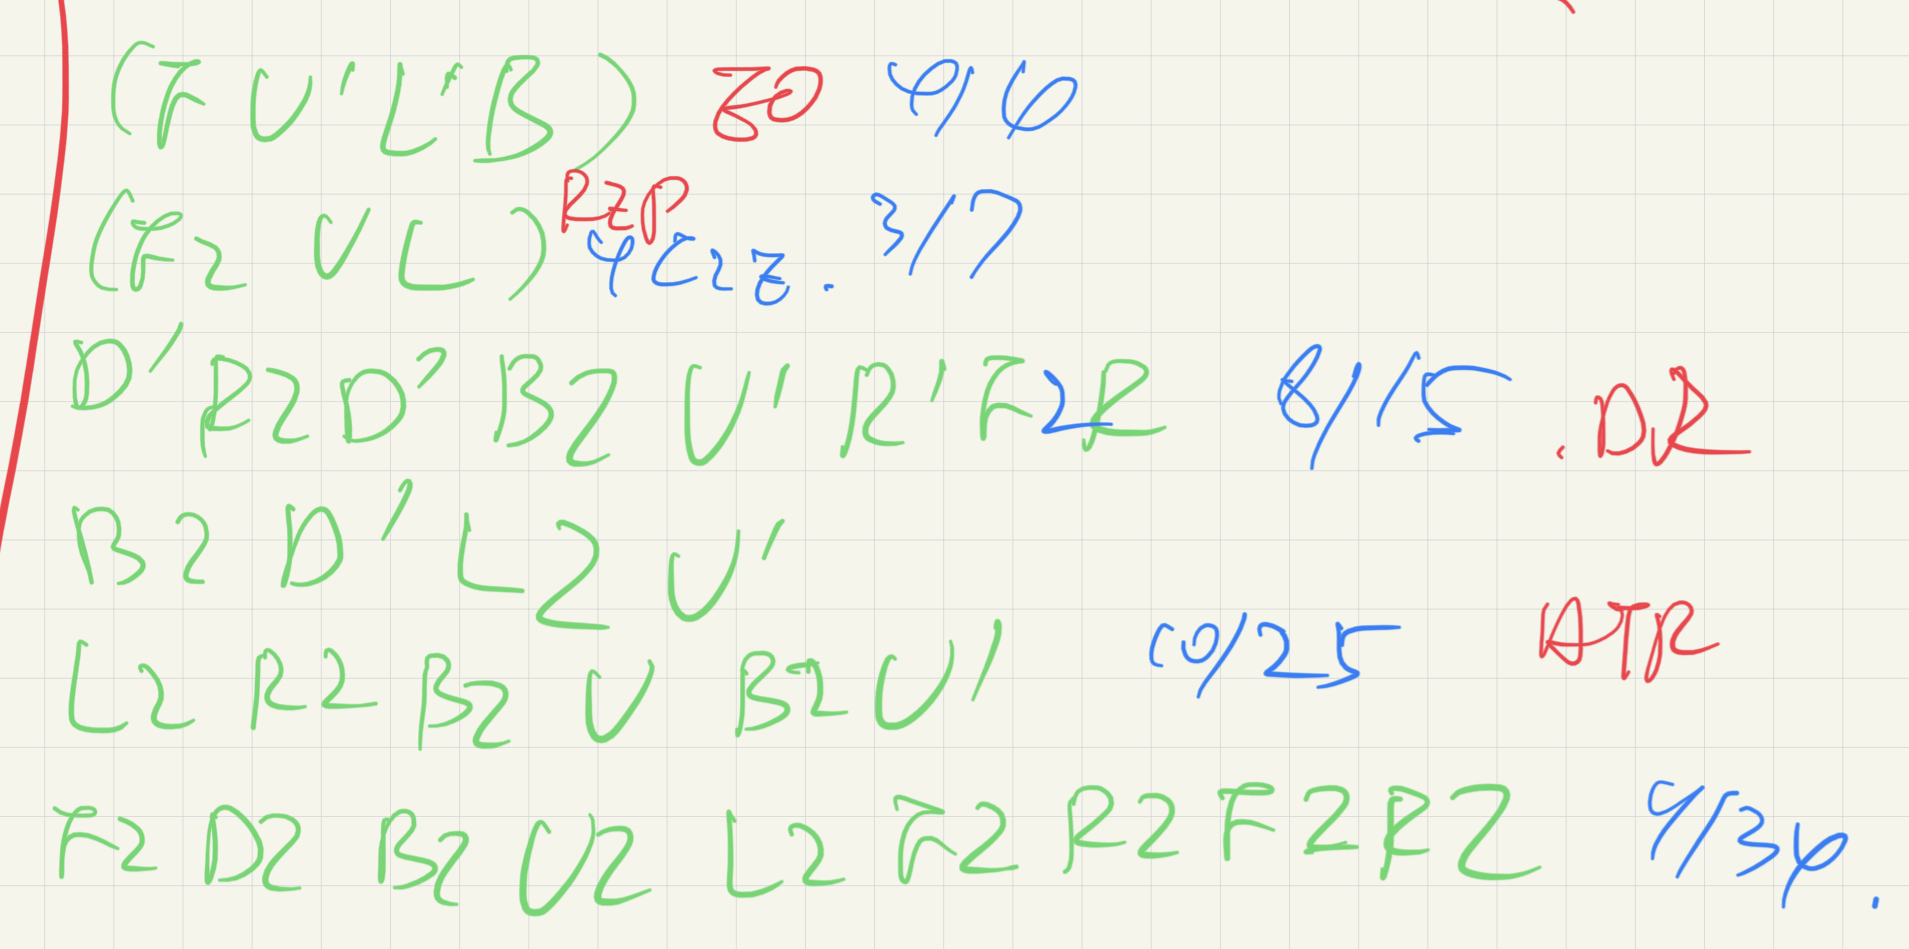 (F U' L' B) EO 4/4
(F2 U L) RZP 4c2e. 3/7
D' R2 D' B2 U' R' F2 R 8/15 . DR
B2 D' L2 U'
L2 R2 B2 U B2 U' 10/25 HTR
F2 D2 B2 U2 L2 F2 R2 F2 R2 9/34.